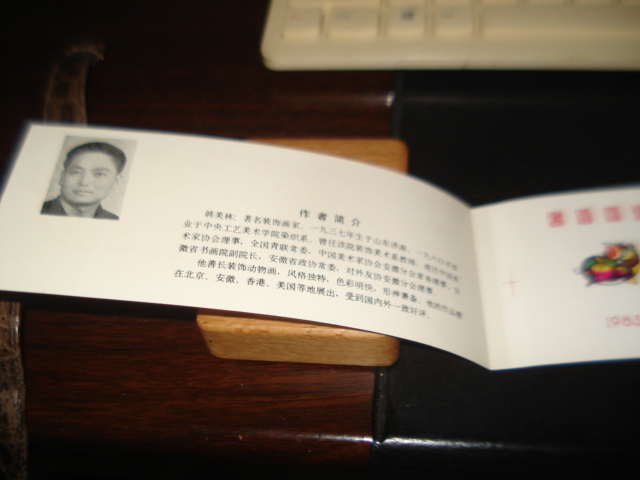 作者简介
韩美林：著名装饰画家。一九三七年生于山东济南。一九六〇年毕
业于中央工艺美术学院染织系。曾任该院装饰美术系教师。现任中国美
术家协会理事、全国青联常委、中国美术家协会安徽分会常务理事、安
徽省书画院副院长、安徽省政协常委、对外友协安徽分会理事。
他善长装饰动物画，风格独特，色彩明快，形神兼备。他的作品曾
在北京、安徽、香港、美国等地展出，受到国内外一致好评。
1983